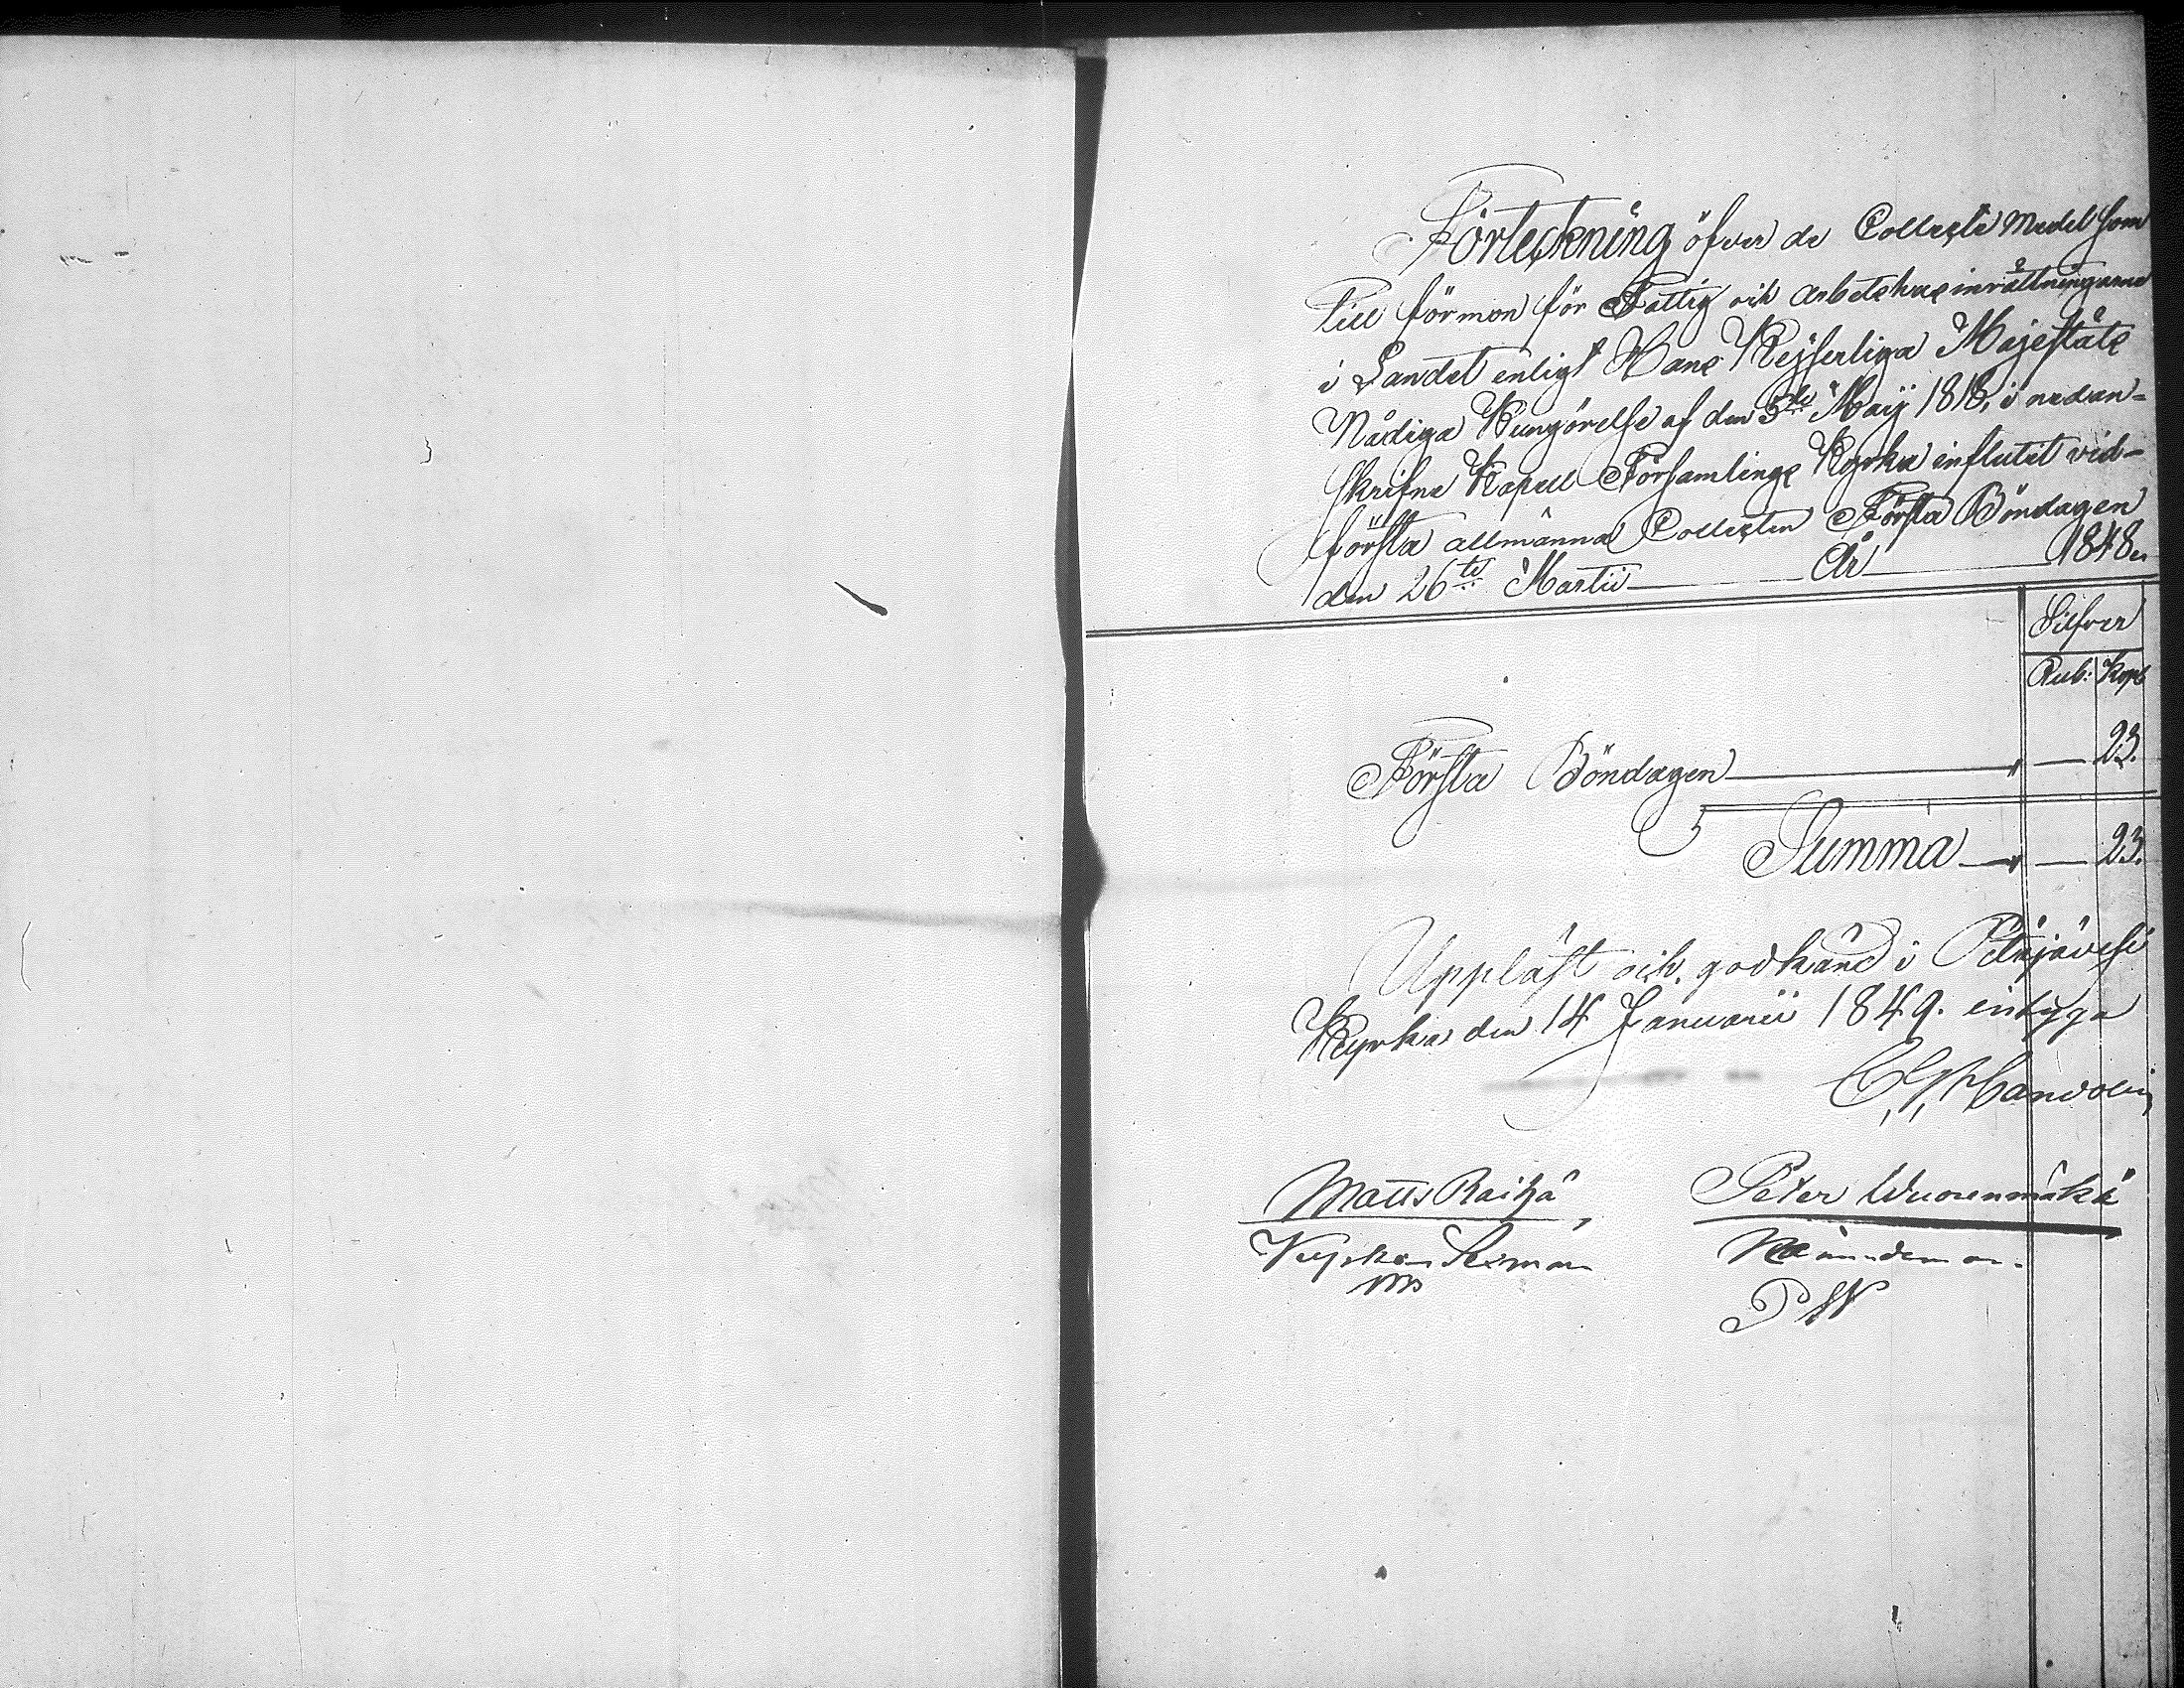 Förteckning öfver de Collecte Medel som
till förmon för Fattig och arbetshus inrättningarne
i Landet enligt Hans Kejserliga Majestäts
Nådiga Kungörelse af den 5te Maij 1818, i nedan-
skrifne Kapell Församlings Kyrka influtit vid
första allmänna Collecten Första Böndagen
den 26te Martii År 1848.
Silfver
Rub: Kop:
Första Böndagen " — 23.
Summa " — 23.
Uppläst och godkänd i Petäjävesi
Kyrka den 14 Januarii 1849. intyga
Matts Raitja Peter Wuorenmäki
Kyrko Nämndeman.
PW